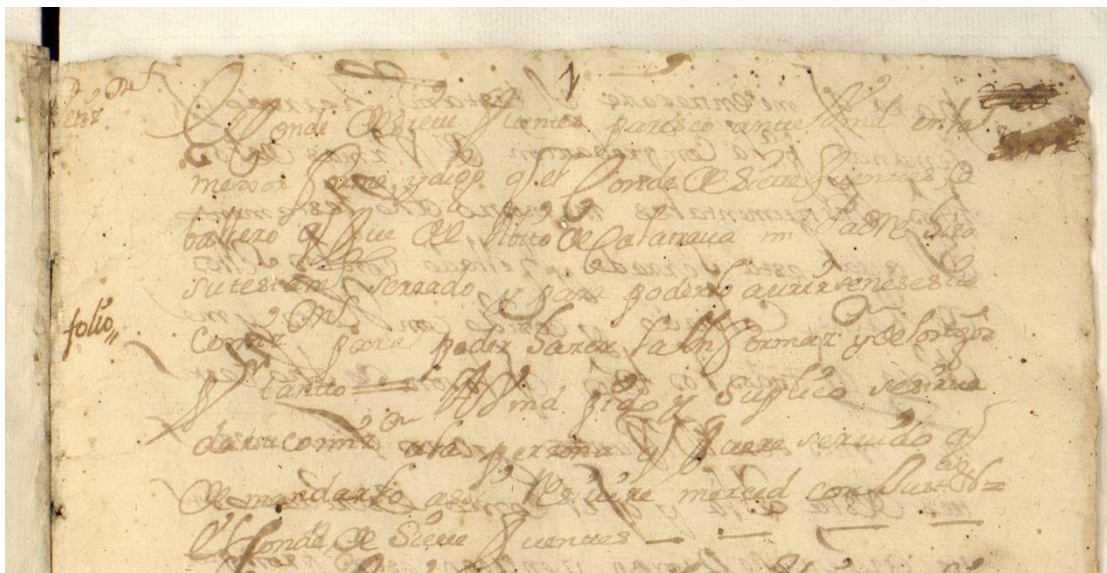 El Conde de Sierre fuentes paresco ante Vmd en la
mexor forma, y digo q el Conde de Sierre fuentes Ca
ballero q fue del Abito de Calatraua mi Padre hiso
su testam.to serrado y para poderlo aurir nesesita
comiz.on para poder haser la informaz.on
folio
p.r tantto = A Vmd pido y Suplico se sirua
dar su comiz.on a la perzona q fuere seruido q
de mandarlo assi Resiuire merced con Just.a
El Conde de Sierre fuentes